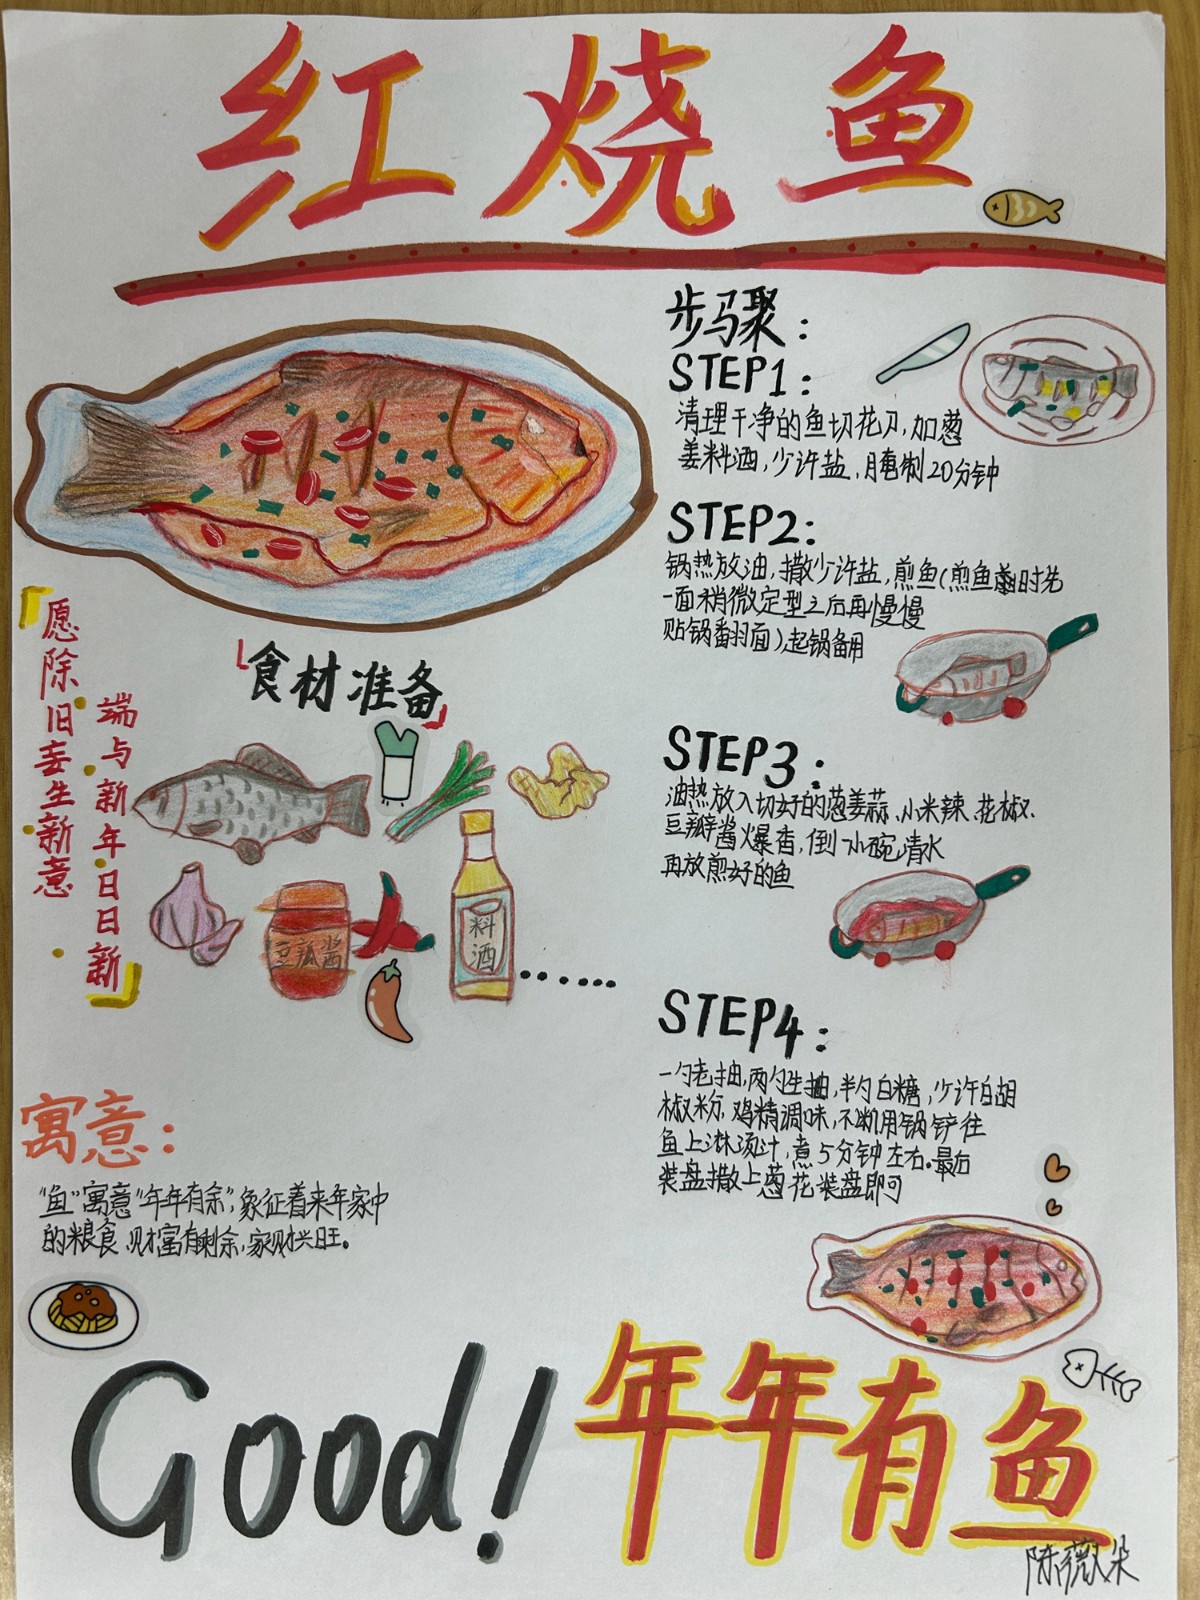 红烧鱼
步骤：
STEP1：
清理干净的鱼切花刀，加葱
姜料酒，少许盐，腌制20分钟
STEP2：
锅热放油，撒少许盐，煎鱼(煎鱼时先
一面稍微定型之后再慢慢
贴锅翻面)，起锅备用
STEP3：
油热放入切好的葱姜蒜、小米辣、花椒、
豆瓣酱爆香，倒小碗清水
再放煎好的鱼
STEP4：
一勺老抽，两勺生抽，半勺白糖，少许白胡
椒粉，鸡精调味，不断用锅铲往
鱼上淋汤汁，煮5分钟左右。最后
装盘撒上葱花装盘即可
愿除旧妄生新意
端与新年日日新
食材准备
豆瓣酱
料酒
寓意：
“鱼”寓意“年年有余”，象征着来年家中
的粮食、财富有剩余，家财兴旺。
Good!
年年有鱼
陈薇朵